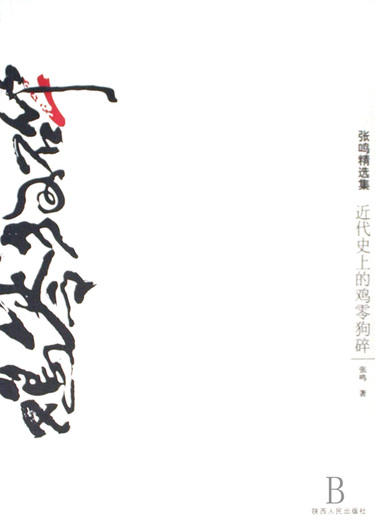 张鸣精选集
近代史上的鸡零狗碎
张鸣 著
B
陕西人民出版社